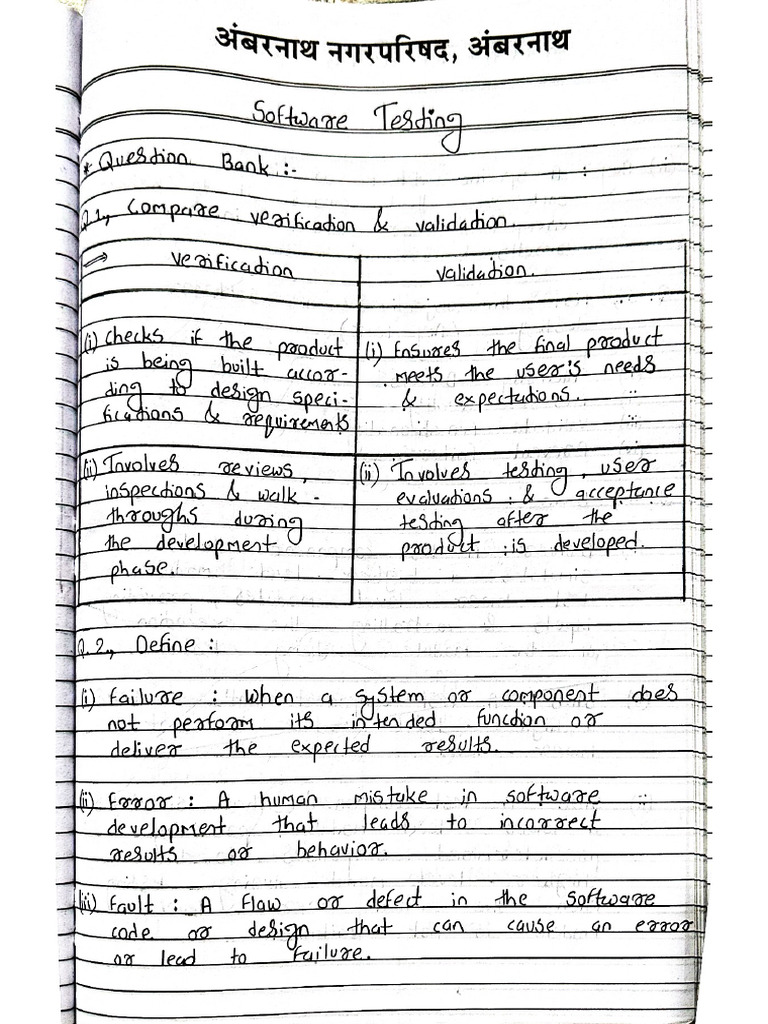 अंबरनाथ नगरपरिषद, अंबरनाथ
Software Testing
* Question Bank :-
Q.1., Compare verification & validation.
⇒ verification
validation.
(i) Checks if the product
is being built accor-
ding to design speci-
fications & requirements
(i) Ensures the final product
meets the user's needs
& expectations.
(ii) Involves reviews,
inspections & walk-
throughs during
the development
phase.
(ii) Involves testing, user
evaluations & acceptance
testing after the
product is developed.
Q.2., Define :
(i) Failure : When a system or component does
not perform its intended function or
deliver the expected results.
(ii) Error : A human mistake in software
development that leads to incorrect
results or behavior.
(iii) Fault : A flaw or defect in the software
code or design that can cause an error
or lead to failure.